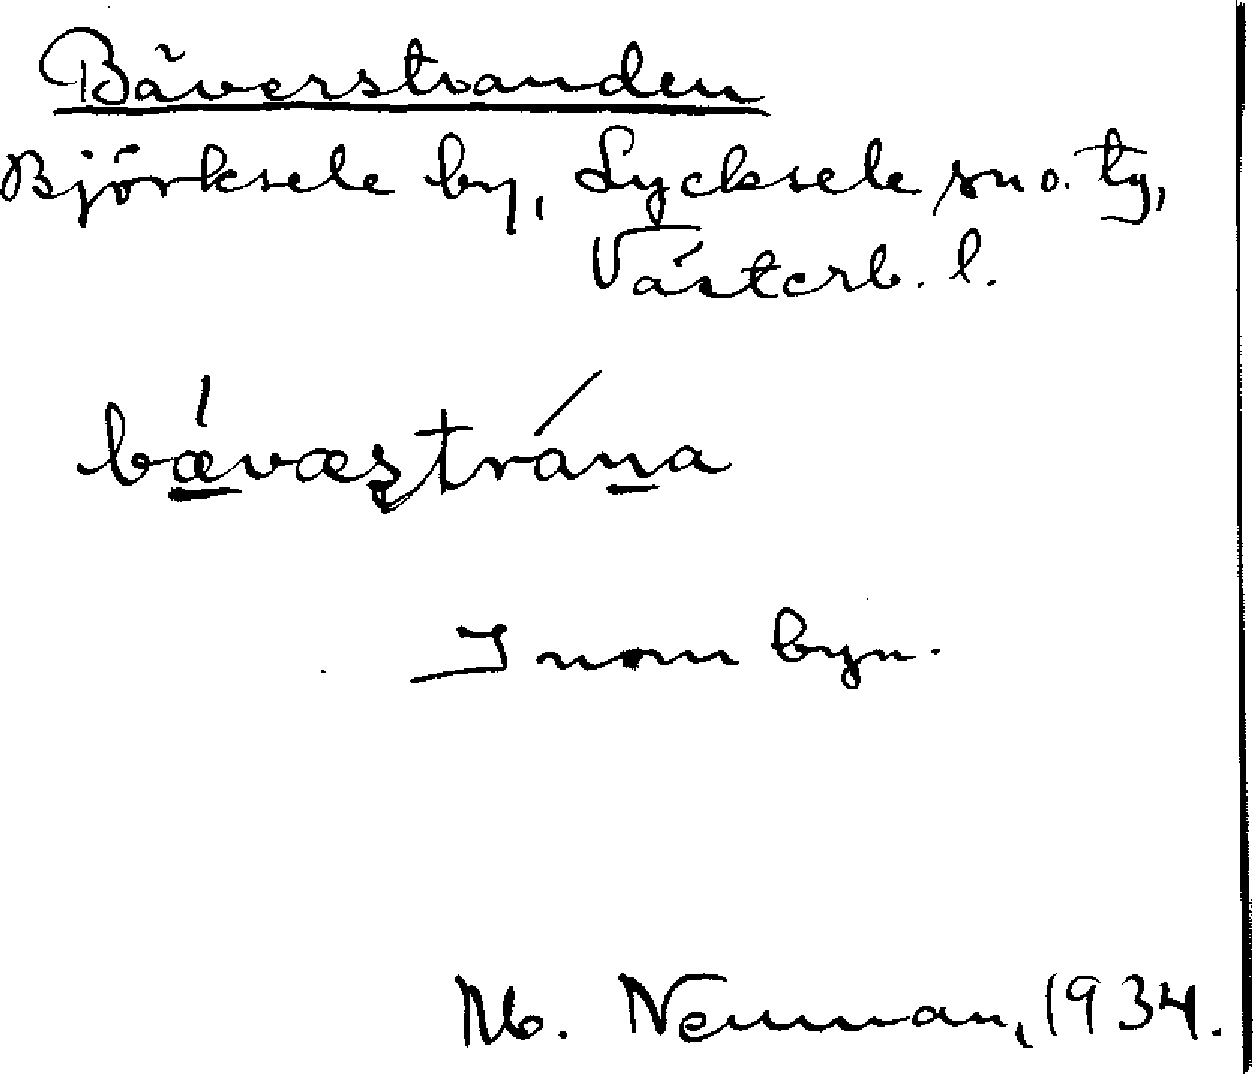 Bäverstranden
Björksele by, Lycksele sn o. tg,
Västerb. l.
bæ̀væʂtrána
Inom byn.
Neuman, 1934.